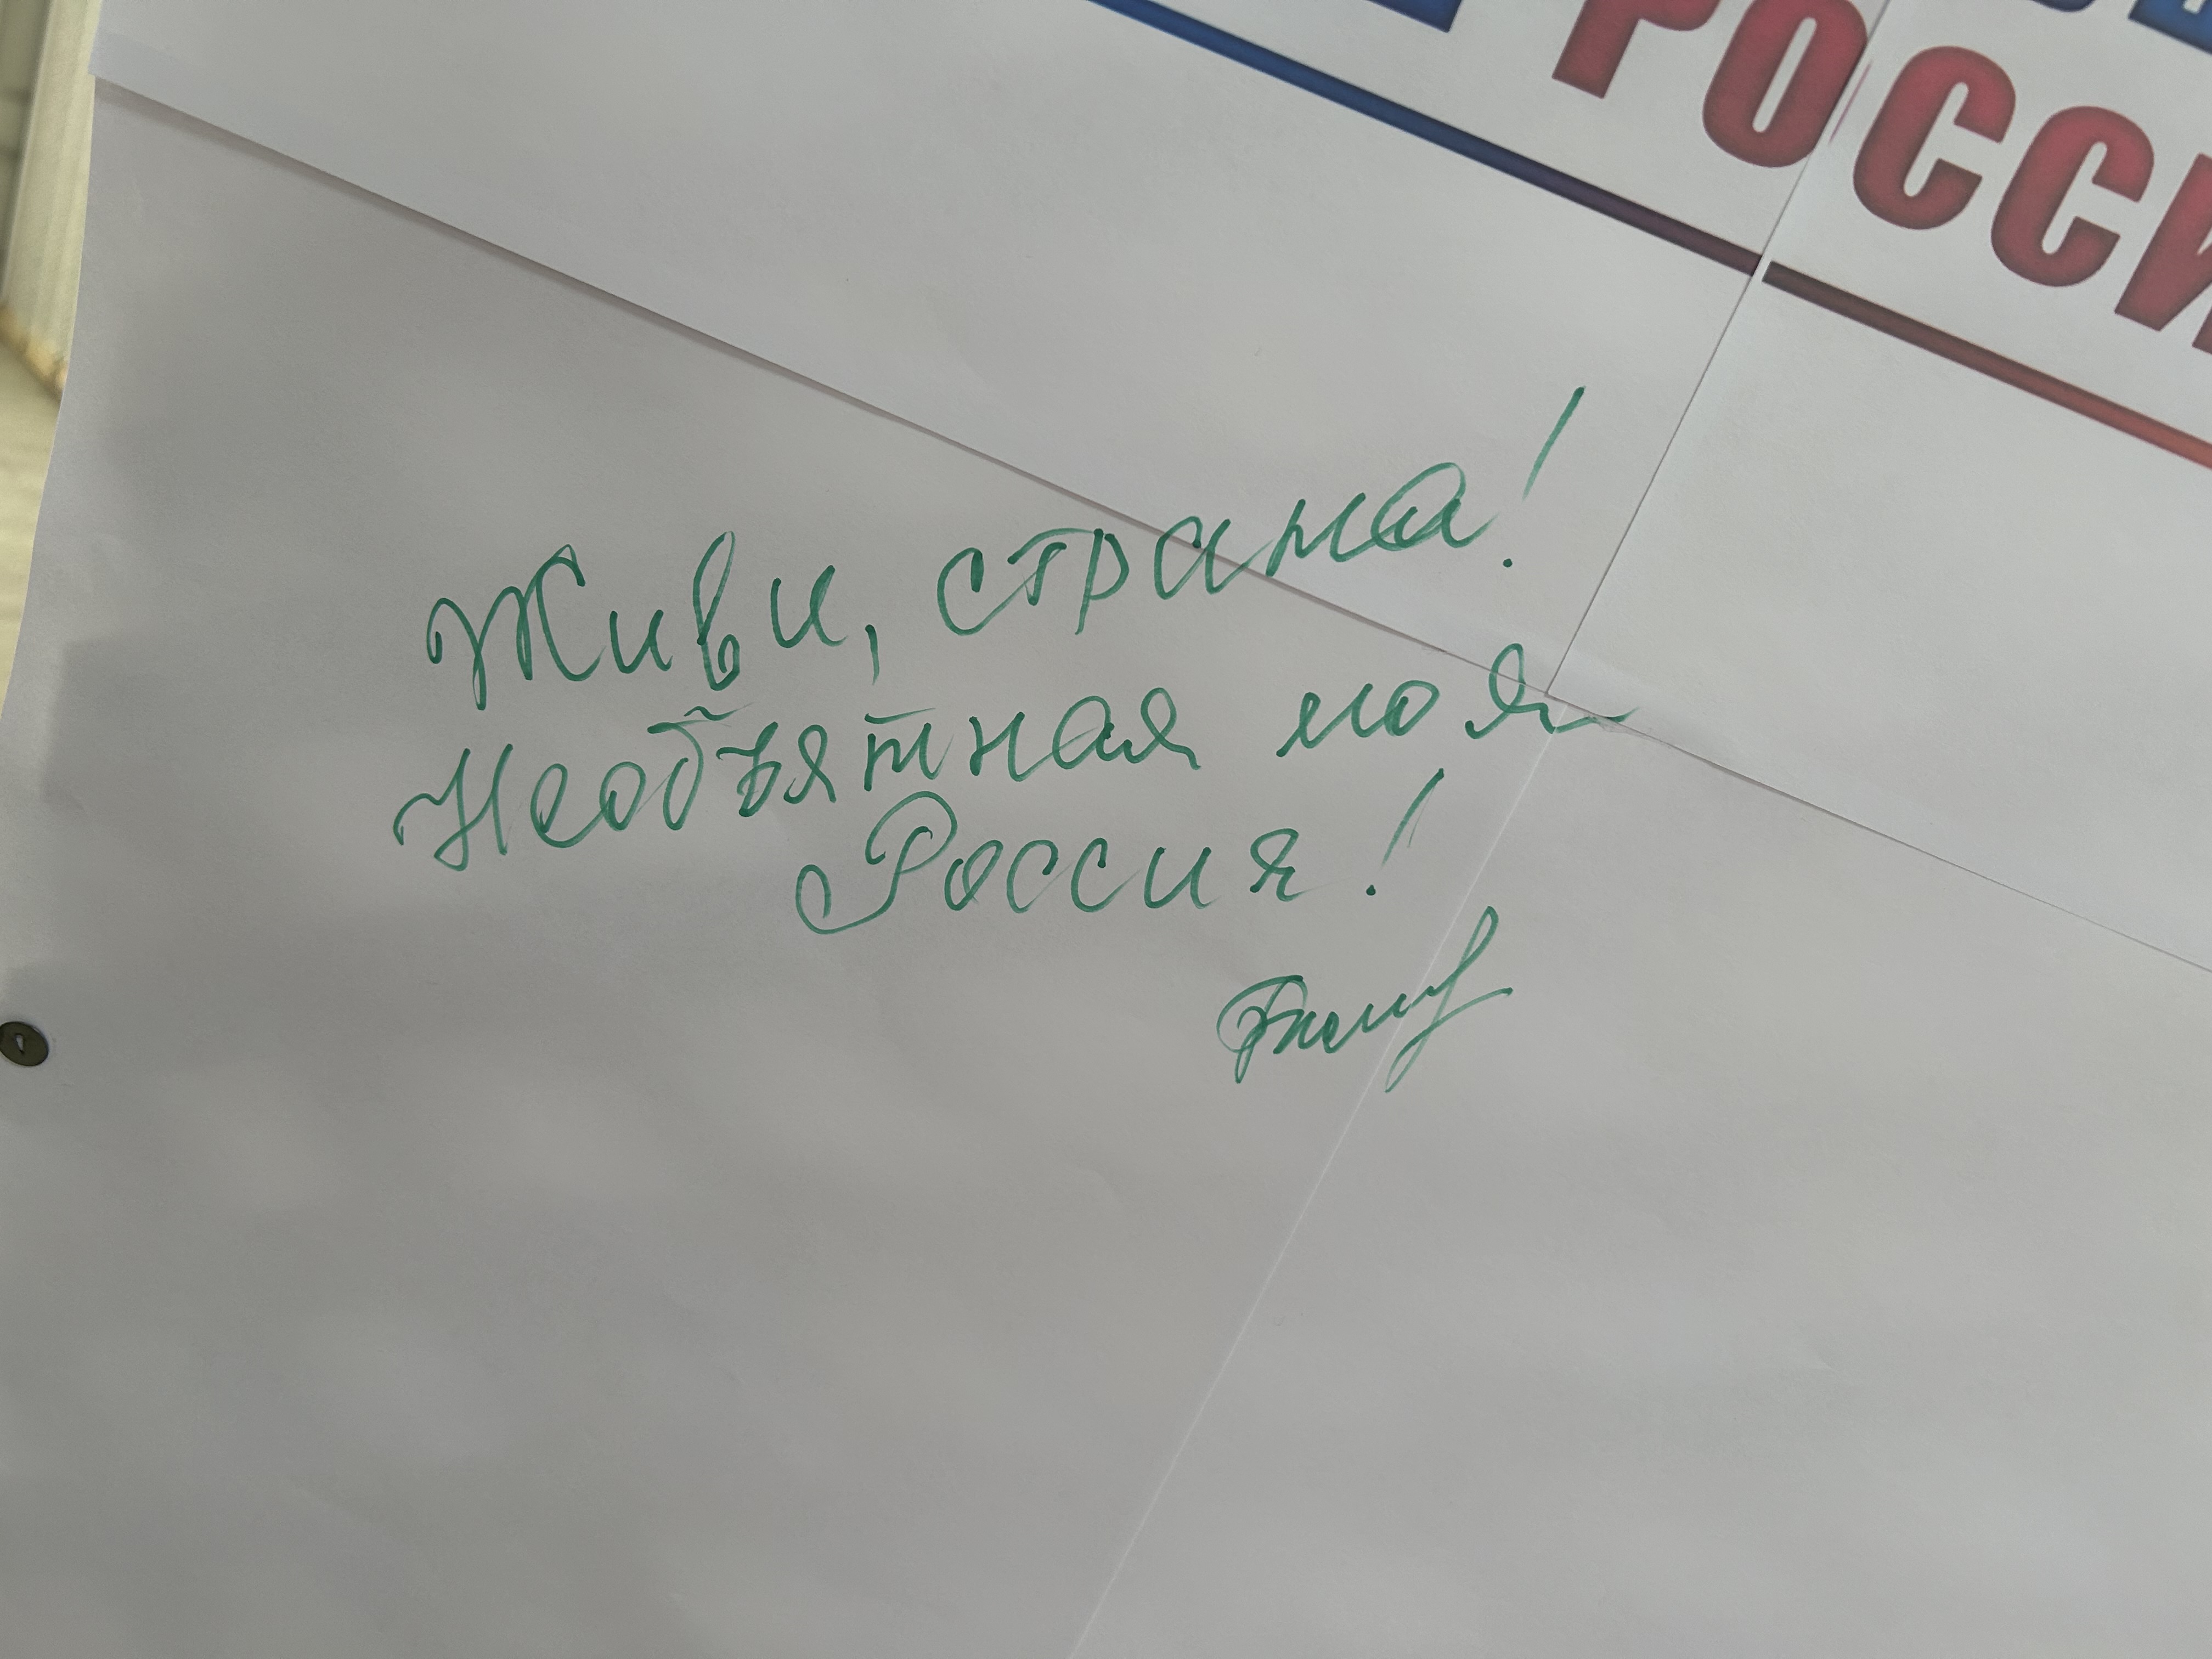 РОССИ
Живи, страна!
Необъятная моя
Россия!